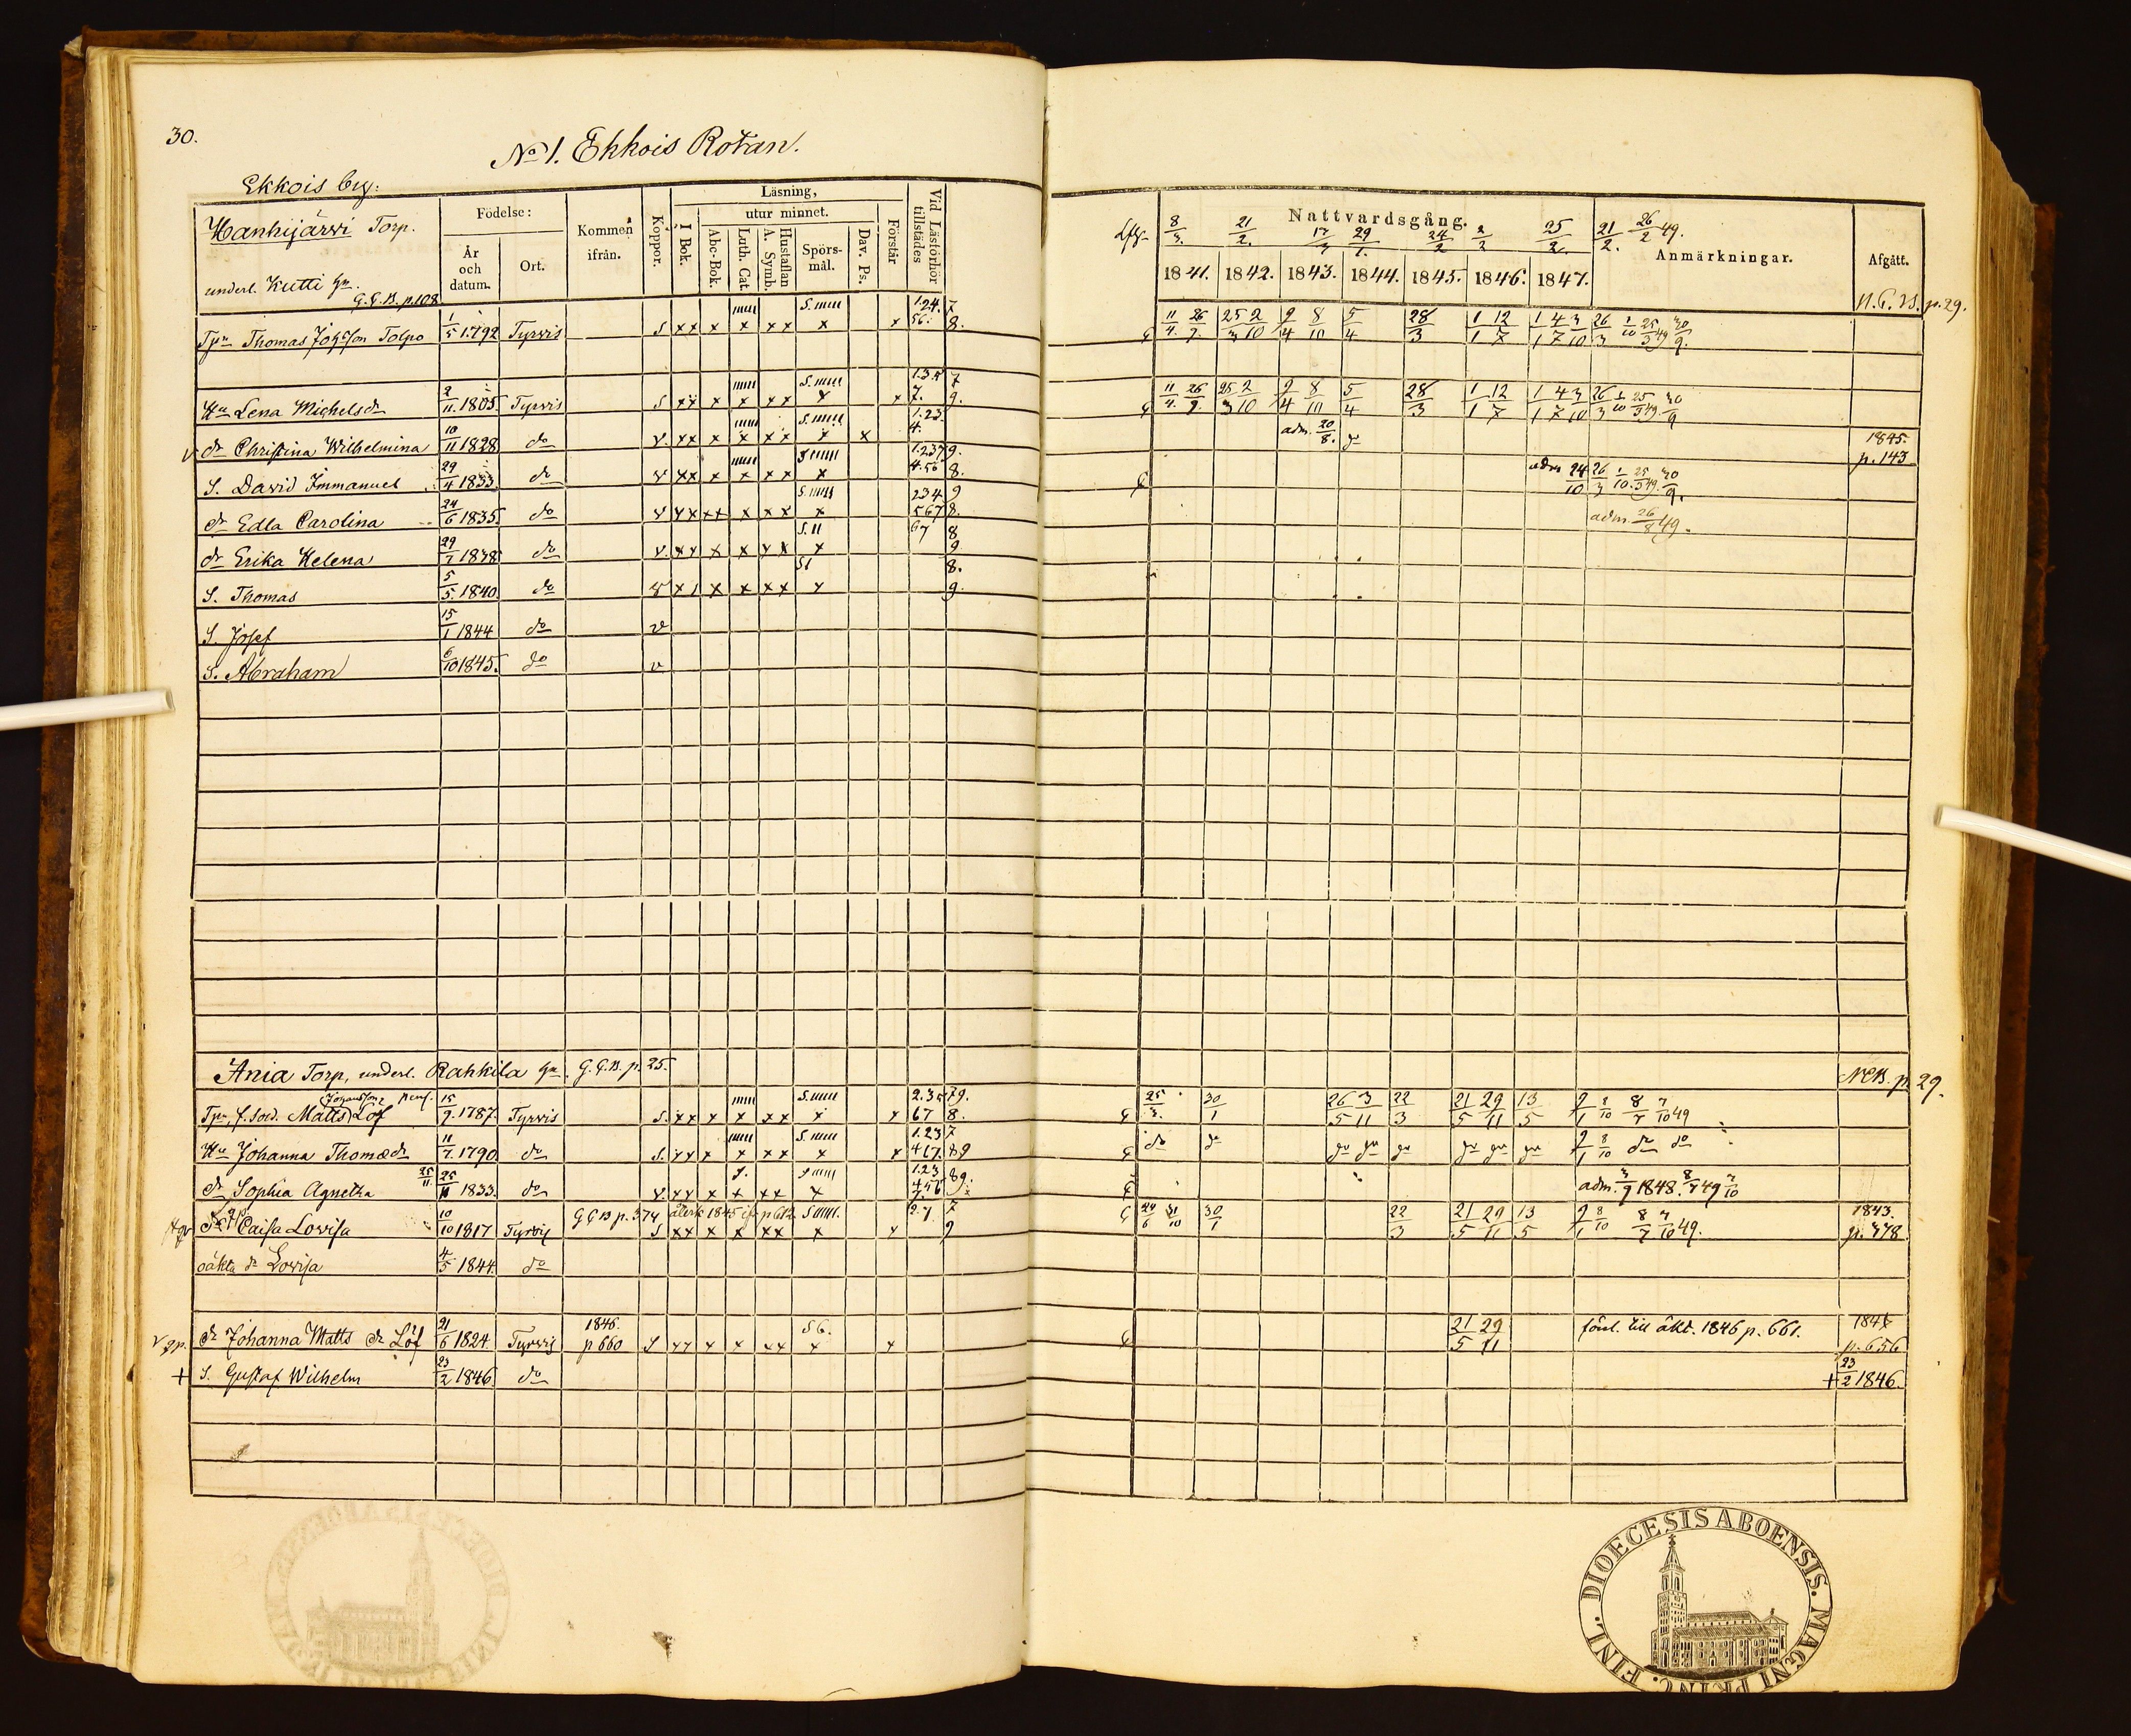 30.
No 1. Ekkois Rotan.
Ekkois by:
Hanhijärwi Torp.
underl. Kutti hn.
G.G.B. p.108
Födelse:
År och datum.
Ort.
Kommen ifrån.
Koppor.
Läsning,
I Bok.
utur minnet.
Abc-Bok.
Luth. Cat.
A. Symb.
Hustaflan
Spörs-mål.
Dav. Ps.
Förstår
Vid Läsförhör tillstädes
Nattvardsgång.
8/3. 21/2. 29/1. 24/2 2/2 25/2. 21/2. 26/2 49.
1841. 1842. 1843. 1844. 1845. 1846. 1847.
Anmärkningar.
Afgått.
N.C.B. p.29.
Tpn Thomas Johsson Tolpo 1/5 1792 Tyrvis S x x x x x x x x 1.24. 56. 7 8. 11/4. 26/9. 25/3 2/10 9/4 8/10 5/4 28/3 1/1 12/7 1/1 4/7 3/10 26/3 1/10 25/3 49 30/9.
Hu Lena Michelsdr 2/11. 1805 Tyrvis S x x x x x x x x 7. 7 9. 11/4. 26/9. 25/3 2/10 9/4 8/10 5/4 28/3 1/1 12/7 1/1 4/7 3/10 26/3 1/10 25/3 49. 30/9
v dr Christina Wilhelmina 10/11 1828 do v. x x x x x x x x 1.23. 4. adm. 20/8. do 1845. p.143
S. David Immanuel 29/4 1833 do v x x x x x x x 1.237 4.56 9. 8. adm 24/10 26/3 1/10. 25/3 49. 30/9.
dr Edla Carolina 24/6 1835 do v x x x x x x x x 234 567 9 8. adm 26/8 49.
dr Erika Helena 29/7 1838 do v. x x x x x x x S.II 67 8 9
S. Thomas 5/5 1840 do v x x x x x x 8. 9.
S. Josef 15/1 1844 do v
S. Abraham 6/10 1845. do v
Ania Torp, underl. Rahkila hn. G.G.B. p. 25. NCB. p. 29.
Johansson penf.
Tpn, f. sold. Matts Löf 15/9. 1787. Tyrvis S. x x x x x x x x 2.35 67 79. 8. 25/3. 30/1 26/5 3/11 22/3 21/5 29/11 13/5 9/1 8/10 8/7 7/10 49
Hu Johanna Thomædr 11/7. 1790 do S. x x x x x x x x 1.23 467. 7 89 do do do do do do do do 9/1 8/10 do do
dr Sophia Agnetha 25/11. 25/11 1833. do v. x x x x x x x 1.23 456 7 89. adm. 3/9 1848. 8/7 49 7/10
dr Caisa Lovisa 10/10 1817 Tyrvis G G B p. 374 återk 1845 ifr p 612 S x x x x x x x x 2.7 7 9 24/6 31/10 30/1 22/3 21/5 29/11 13/5 9/1 8/10 8/7 7/10 49. 1843. p. 778
oäkta dr Lovisa 4/5 1844 do
dr Johanna Matts dr Löf 21/6 1824. Tyrvis 1846. p 660 S x x x x x x x x S 6. 21/5 29/11 förel. till äkt. 1846 p. 661. p. 656
+ S. Gustaf Wilhelm 23/2 1846 do + 23/2 1846.
FINL. DIOECESIS ABOENSIS. MAGNI PRINC.